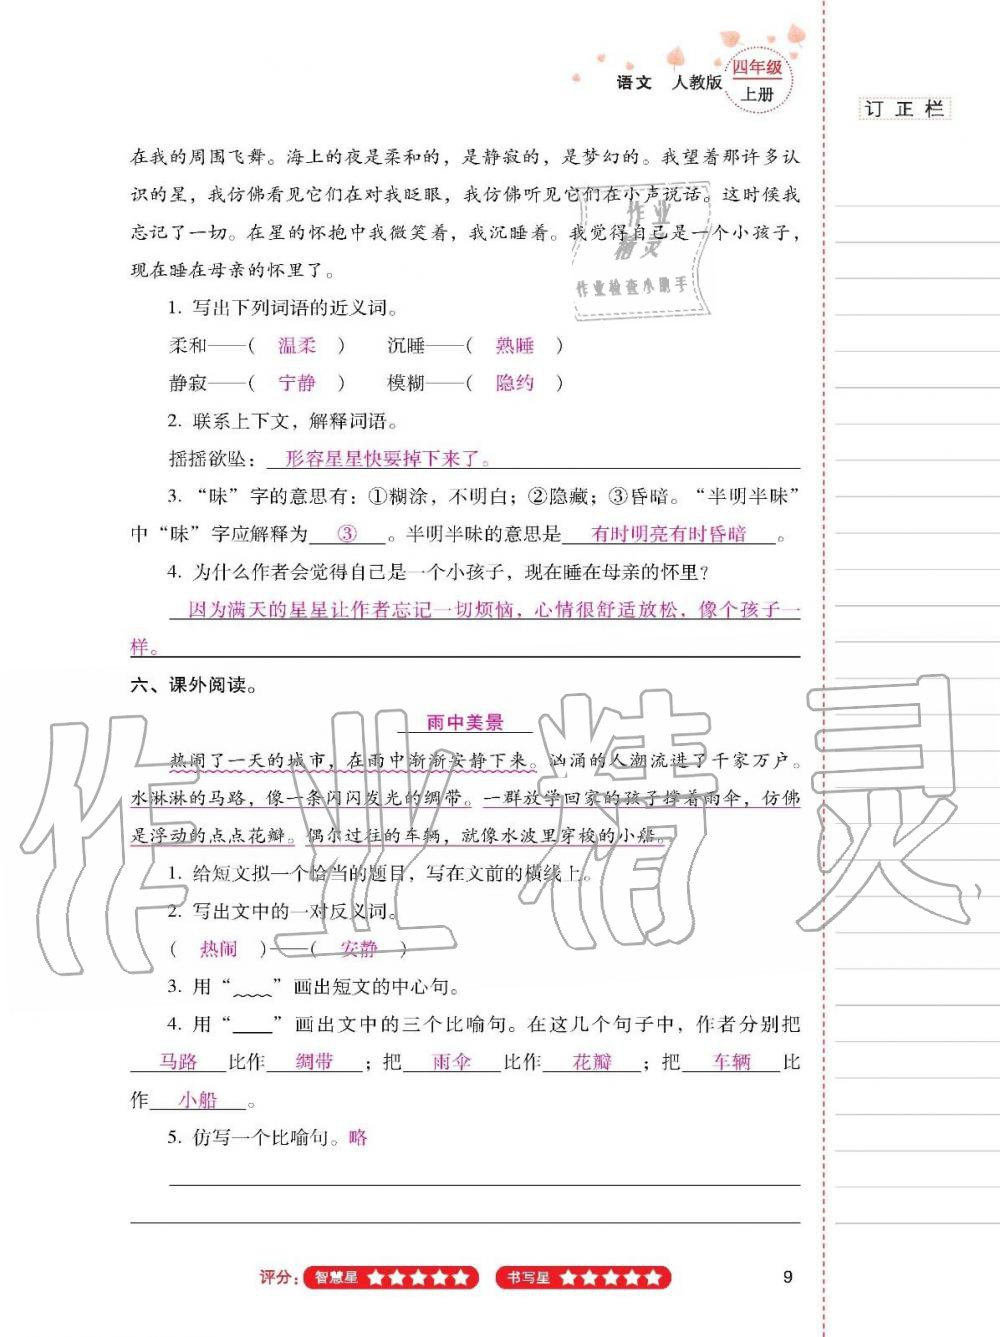 语文 人教版 四年级
上册
订正栏
在我的周围飞舞。海上的夜是柔和的，是静寂的，是梦幻的。我望着那许多认
识的星，我仿佛看见它们在对我眨眼，我仿佛听见它们在小声说话。这时候我
忘记了一切。在星的怀抱中我微笑着，我沉睡着。我觉得自己是一个小孩子，
现在睡在母亲的怀里了。
作业
精灵
作业检查小助手
1. 写出下列词语的近义词。
柔和——( 温柔 ) 沉睡——( 熟睡 )
静寂——( 宁静 ) 模糊——( 隐约 )
2. 联系上下文，解释词语。
摇摇欲坠：形容星星快要掉下来了。
3. “昧”字的意思有：①糊涂，不明白；②隐藏；③昏暗。“半明半昧”
中“昧”字应解释为 ③ 。半明半昧的意思是 有时明亮有时昏暗 。
4. 为什么作者会觉得自己是一个小孩子，现在睡在母亲的怀里？
因为满天的星星让作者忘记一切烦恼，心情很舒适放松，像个孩子一
样。
六、课外阅读。
雨中美景
热闹了一天的城市，在雨中渐渐安静下来。汹涌的人潮流进了千家万户。
水淋淋的马路，像一条闪闪发光的绸带。一群放学回家的孩子撑着雨伞，仿佛
是浮动的点点花瓣。偶尔过往的车辆，就像水波里穿梭的小船。
1. 给短文拟一个恰当的题目，写在文前的横线上。
2. 写出文中的一对反义词。
( 热闹 )——( 安静 )
3. 用“﹏﹏”画出短文的中心句。
4. 用“____”画出文中的三个比喻句。在这几个句子中，作者分别把
马路 比作 绸带 ；把 雨伞 比作 花瓣 ；把 车辆 比
作 小船 。
5. 仿写一个比喻句。略
作业精灵
评分： 智慧星 ★★★★★ 书写星 ★★★★★
9